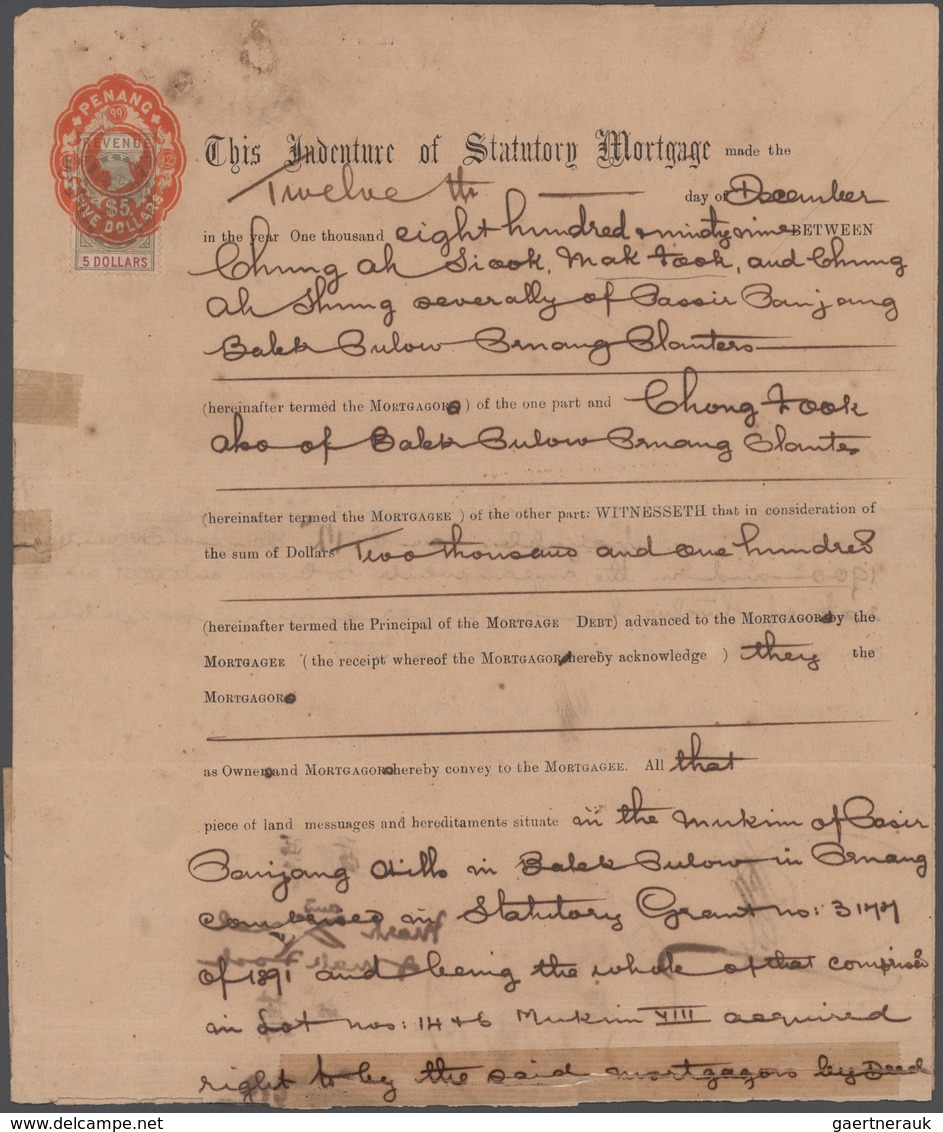 PENANG
99
REVENUE
12
$5.
FIVE DOLLARS
5 DOLLARS
This Indenture of Statutory Mortgage made the
Twelve th day of December
in the year One thousand eight hundred & ninety nine BETWEEN
Chung Ah Siook, Mak Fook, and Chung
Ah Shung severally of Passir Panjang
Balek Pulow Penang Planters
(hereinafter termed the MORTGAGORs) of the one part and Chong Fook
also of Balek Pulow Penang Planter
(hereinafter termed the MORTGAGEE ) of the other part: WITNESSETH that in consideration of
the sum of Dollars Two thousand and one hundred
(hereinafter termed the Principal of the MORTGAGE DEBT) advanced to the MORTGAGORs by the
MORTGAGEE (the receipt whereof the MORTGAGORs hereby acknowledge ) they the
MORTGAGORs
as Owners and MORTGAGORs hereby convey to the MORTGAGEE. All that
piece of land messuages and hereditaments situate in the Mukim of Pasir
Panjang Hills in Balek Pulow in Penang
comprised in Statutory Grant no: 3177
of 1891 and being the whole of that comprised
in Lot nos: 14 & 6 Mukim VIII acquired
right to by the said mortgagors by Deed
gaertnerauk / delcampe.net